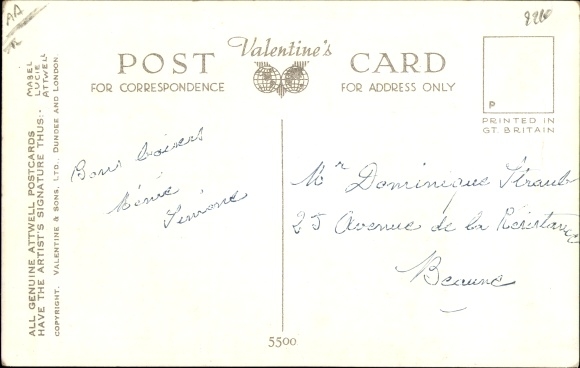 AA
8260
Valentine's
POST CARD
FOR CORRESPONDENCE
FOR ADDRESS ONLY
P
PRINTED IN
GT. BRITAIN
ALL GENUINE ATTWELL POSTCARDS
HAVE THE ARTIST'S SIGNATURE THUS:-
MABEL
LUCIE
ATTWELL
COPYRIGHT. VALENTINE & SONS, LTD., DUNDEE AND LONDON.
Bons baisers
Mr Dominique
25 Avenue de la Résistance
Beaune
5500